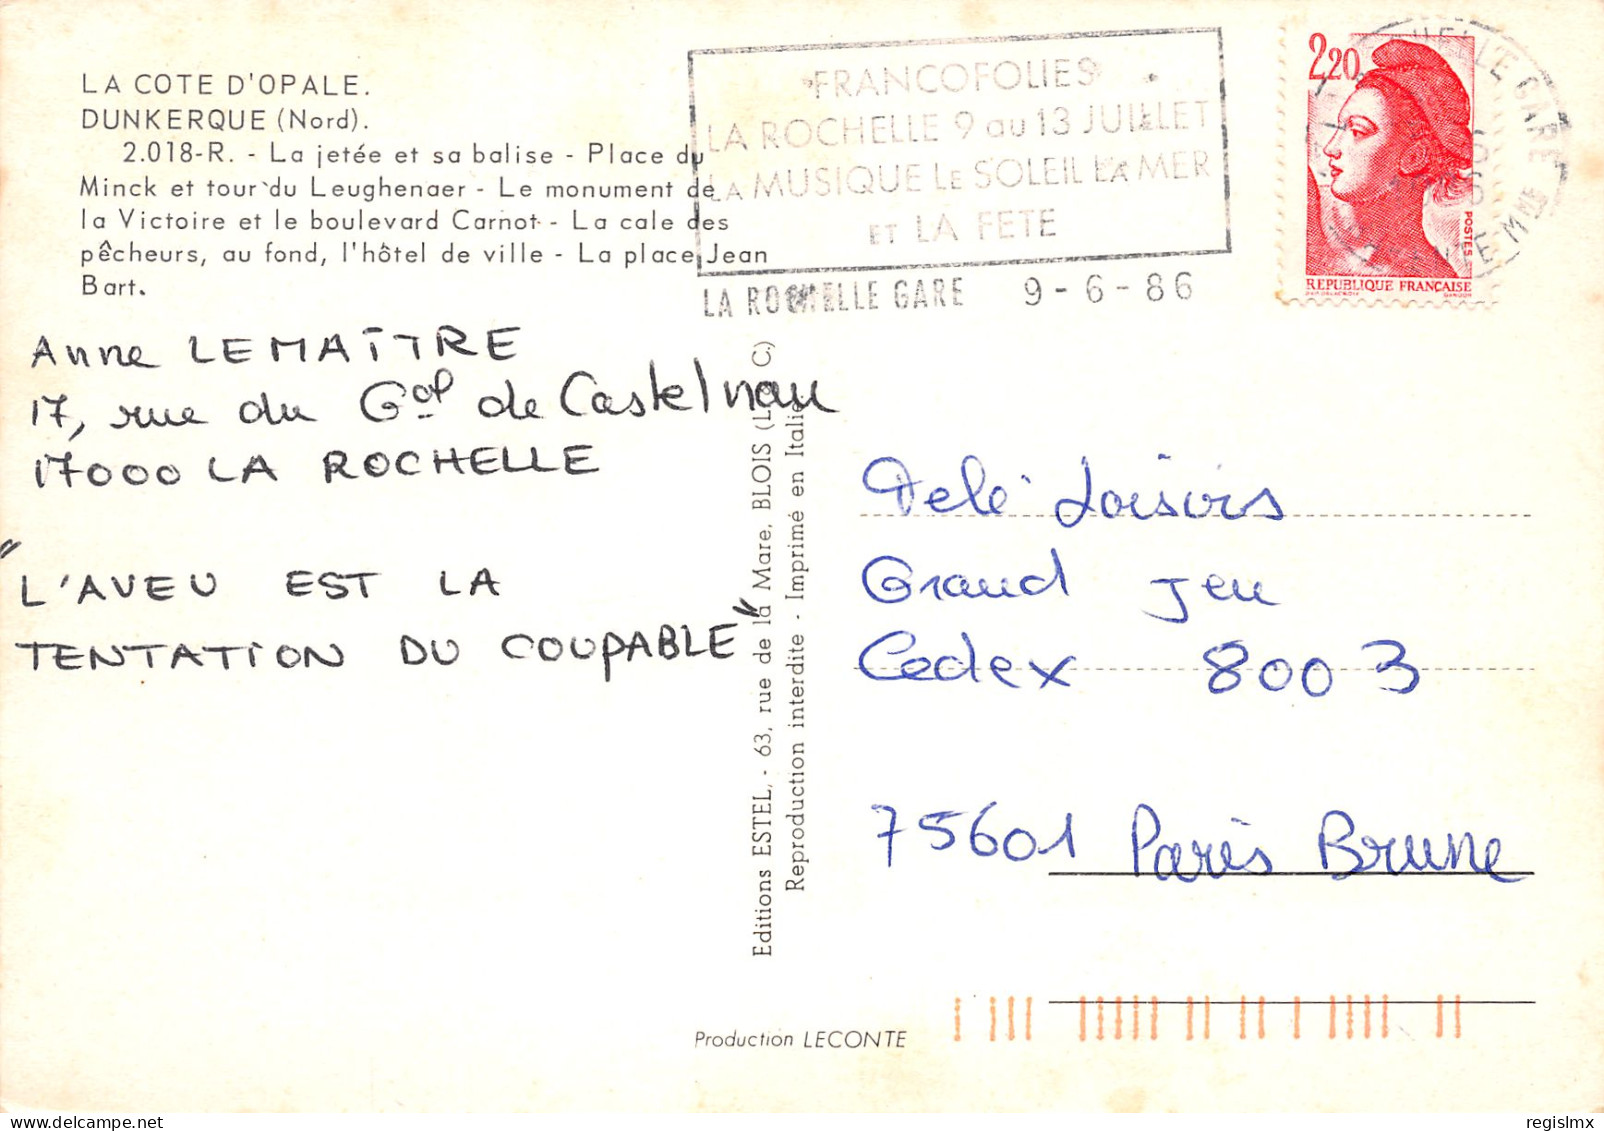 LA COTE D'OPALE.
DUNKERQUE (Nord).
2.018-R. - La jetée et sa balise - Place du
Minck et tour du Leughenaer - Le monument de
la Victoire et le boulevard Carnot - La cale des
pêcheurs, au fond, l'hôtel de ville - La place Jean
Bart.
FRANCOFOLIES
LA ROCHELLE 9 au 13 JUILLET
LA MUSIQUE LE SOLEIL LA MER
ET LA FETE
LA ROCHELLE GARE 9-6-86
2,20
POSTES
REPUBLIQUE FRANÇAISE
Anne LEMAÎTRE
17, rue du Gal de Castelnau
17000 LA ROCHELLE
"L'AVEU EST LA
TENTATION DU COUPABLE"
Editions ESTEL, - 63, rue de la Mare, BLOIS (L. C.)
Reproduction interdite - Imprimé en Italie
Télé Loisirs
Grand Jeu
Cedex 8003
75601 Paris Brune
Production LECONTE
regislmx